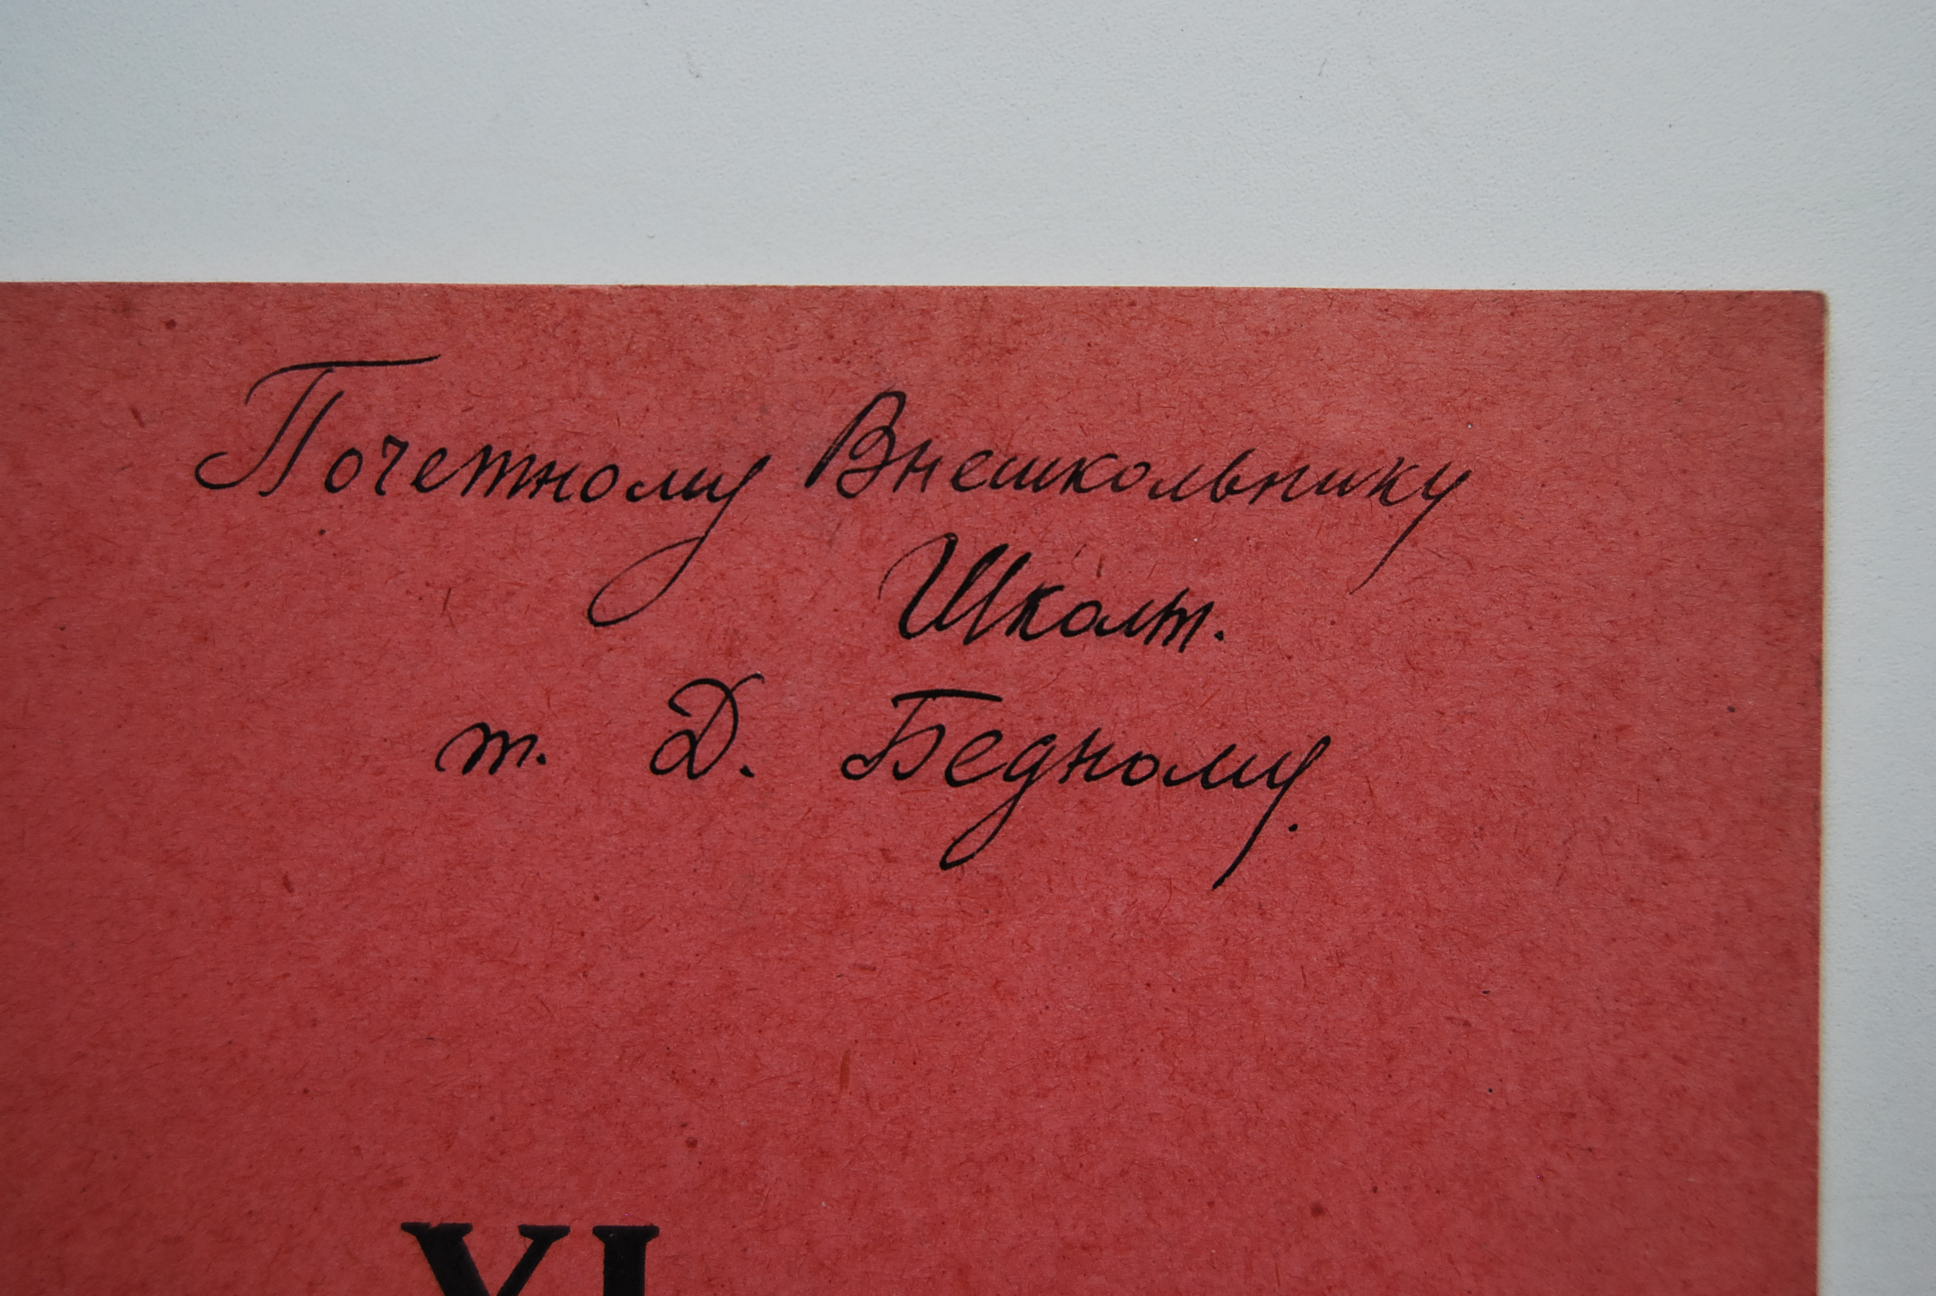 Почетному Внешкольнику
Школт.
т. Д. Бедному.
XI